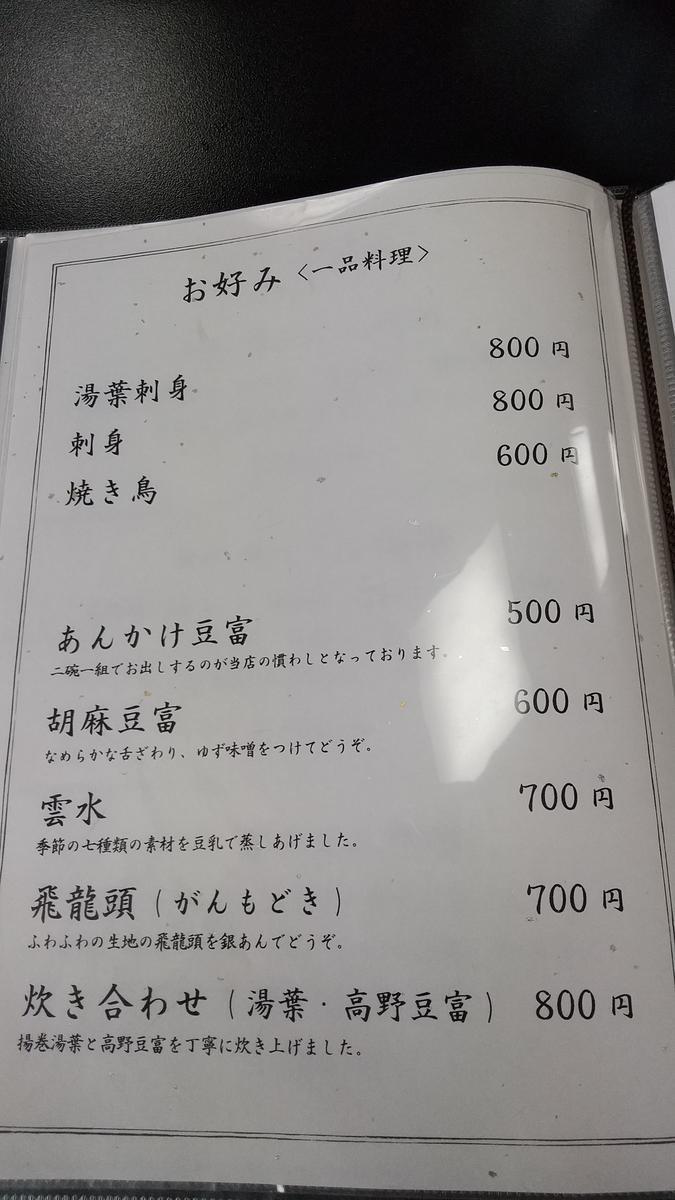 お好み〈一品料理〉
湯葉刺身 800円
刺身 800円
焼き鳥 600円
あんかけ豆富 500円
二碗一組でお出しするのが当店の慣わしとなっております。
胡麻豆富 600円
なめらかな舌ざわり、ゆず味噌をつけてどうぞ。
雲水 700円
季節の七種類の素材を豆乳で蒸しあげました。
飛龍頭(がんもどき) 700円
ふわふわの生地の飛龍頭を銀あんでどうぞ。
炊き合わせ(湯葉・高野豆富) 800円
揚巻湯葉と高野豆富を丁寧に炊き上げました。